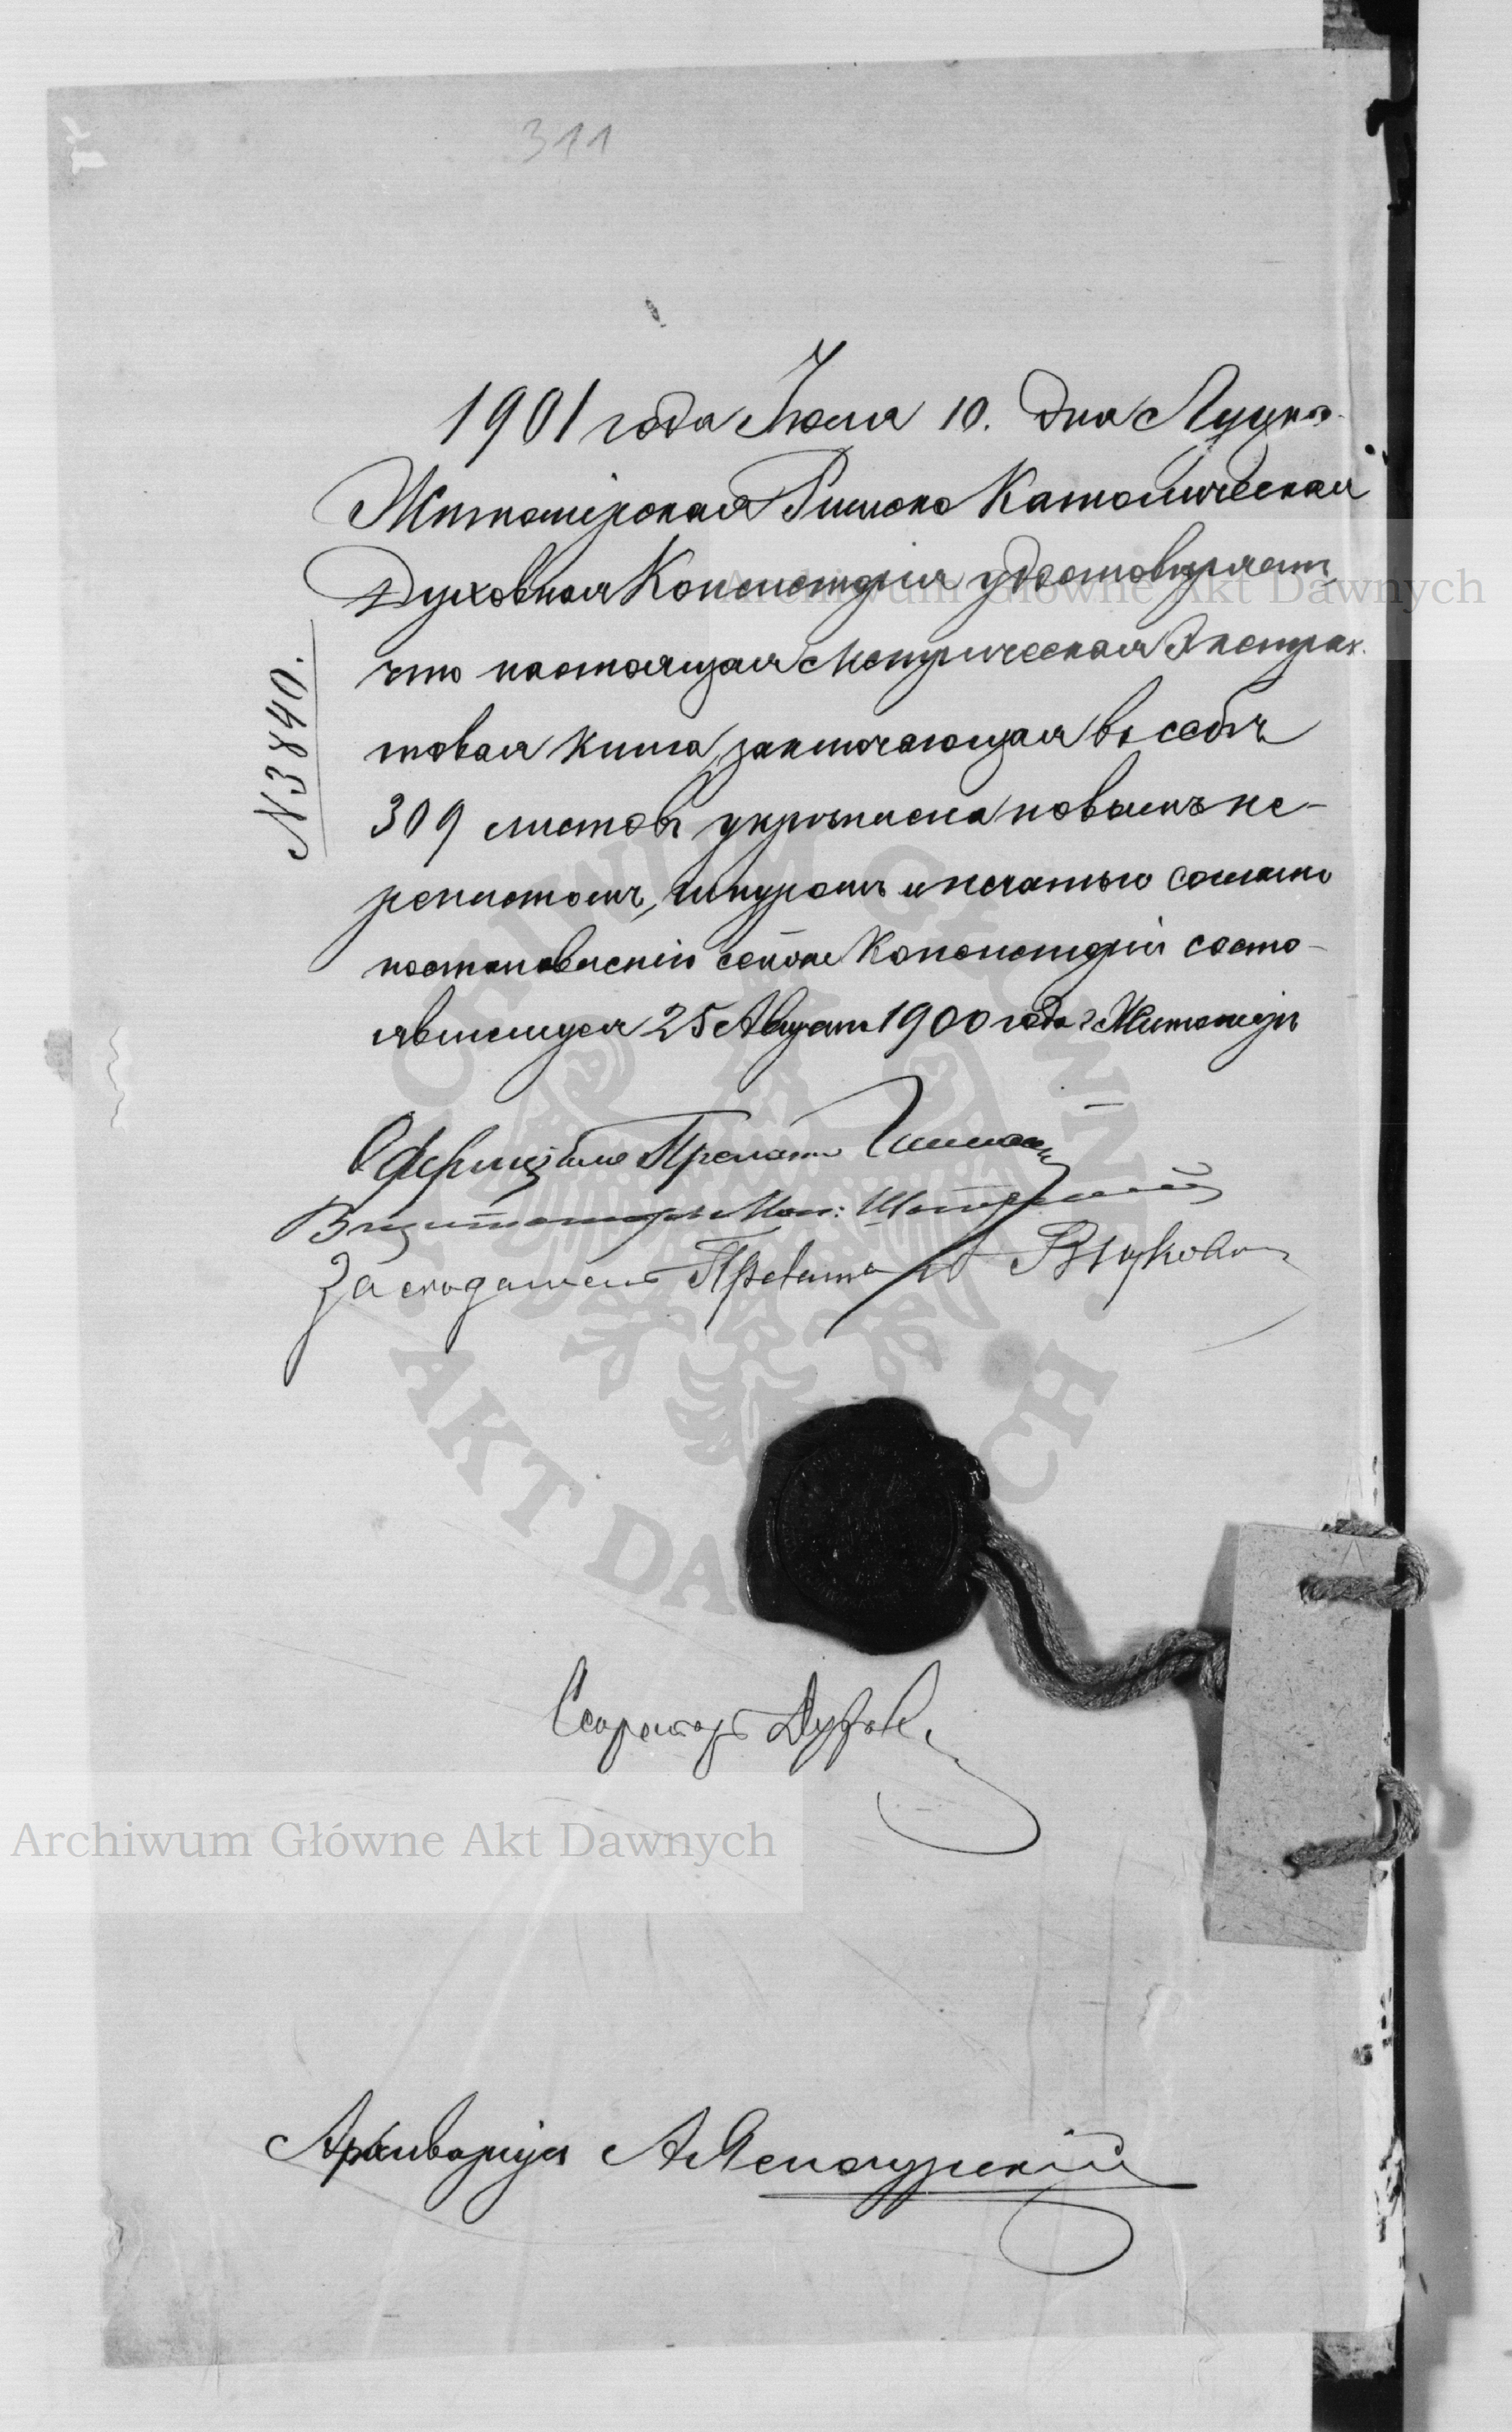 311
1901 года Іюля 10. дня Луцко-
Житомірская Римско Католическая
Духовная Консисторія удостовѣряетъ,
что настоящая Метрическая Экстрак-
товая книга, заключающая въ себѣ
309 листовъ укрѣплена новымъ пе-
реплетомъ, шнуромъ и печатью согласно
постановленію сей же Консисторіи состо-
явшемуся 25 Августа 1900 года г. Житоміръ
N 3840.
Оффиціалъ Прелатъ
Визитаторъ Мон:
Засѣдатель Прелатъ
Секретарь
Архиваріусъ А.
Archiwum Główne Akt Dawnych
Archiwum Główne Akt Dawnych
ARCHIWUM GŁÓWNE AKT DAWNYCH